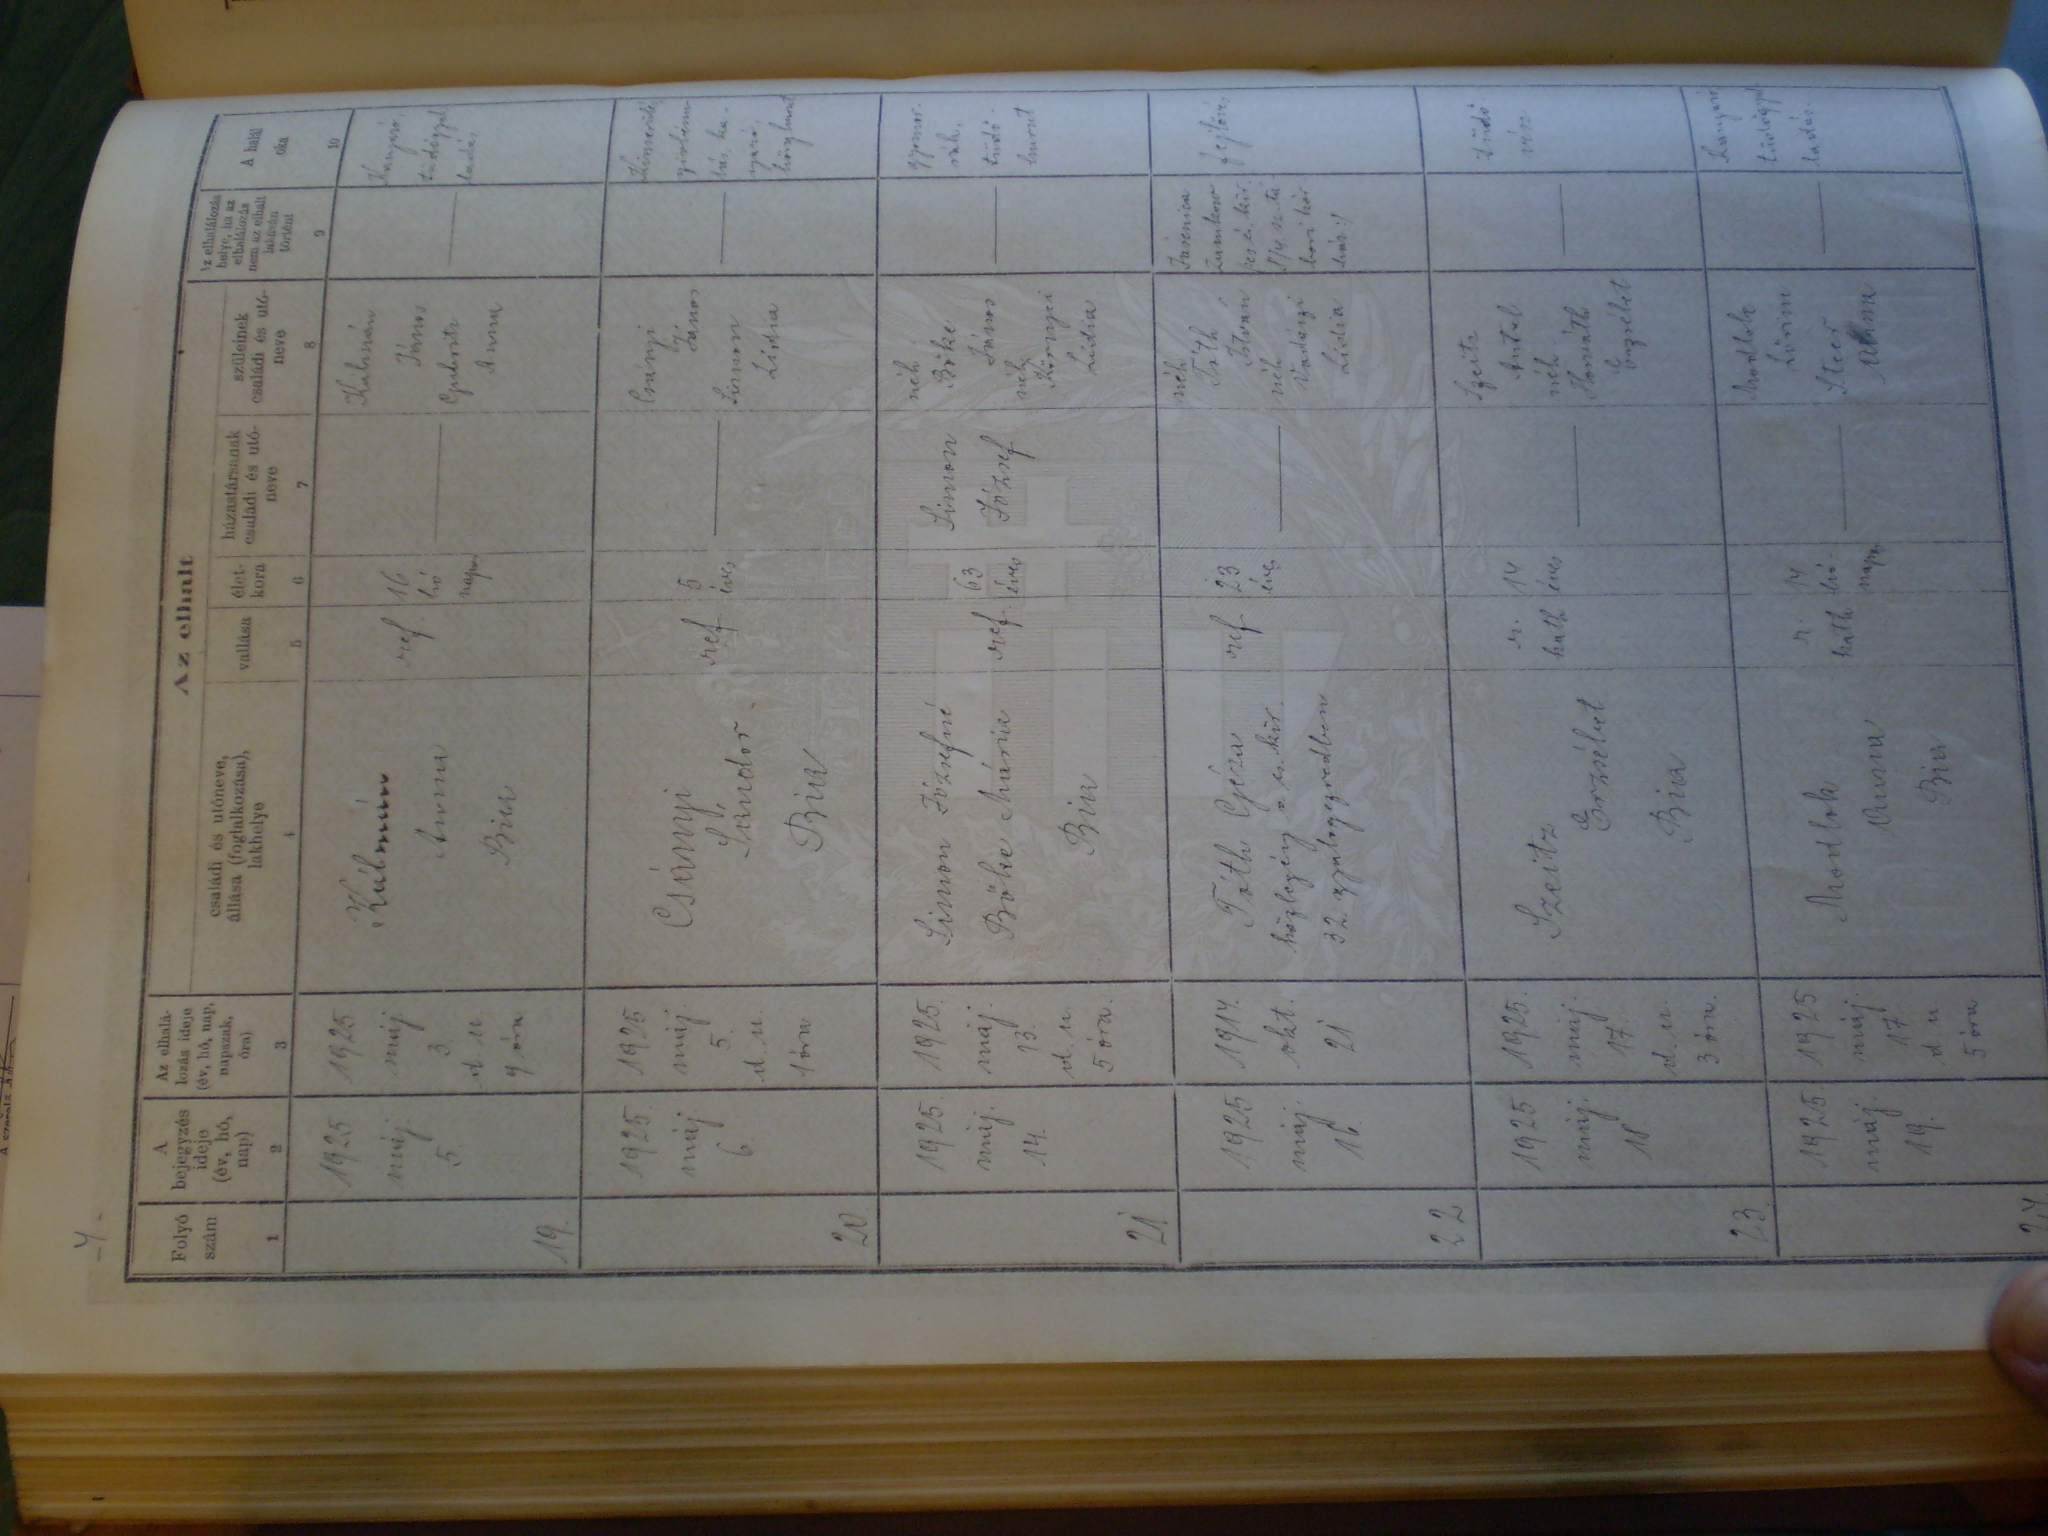 -4-
Az elhalt
Folyó
szám
A
bejegyzés
ideje
(év, hó,
nap)
Az elhalá-
lozás ideje
(év, hó, nap,
napszak,
óra)
családi és utóneve,
állása (foglalkozása),
lakhelye
vallása
élet-
kora
házastársának
családi és utó-
neve
szüleinek
családi és utó-
neve
Az elhalálozás
helye, ha az
elhalálozás
nem az elhalt
lakásán
történt
A halál
oka
1 2 3 4 5 6 7 8 9 10
19.
1925
máj.
5
1925
máj.
3.
d. u.
9 óra
Kálmán
Anna
Bia
ref.
16
hó-
napos
Kálmán
János
Anna
Kanyaró,
tüdőgyul
ladás
20.
1925.
máj
6
1925
máj.
5.
d. u.
1 óra
Csányi
Sándor
Bia
ref.
5
éves
Csányi
János
Simon
Lidia
21
1925.
máj.
14.
1925.
máj.
13.
d. u.
5 óra.
Simon Józsefné
Bőke Mária
Bia
ref.
63
éves
Simon
József
néh
Bőke
János
néh
Lidia
gyomor
rák,
tüdő
hurut
22
1925
máj.
16.
1914.
okt.
21
Tóth Géza
közlegény a cs. kir.
32. gyalogezredben
ref
23
éves
néh
Tóth
István
néh
Vadányi
Lidia
fejlövés
23.
1925
máj.
18
1925.
máj.
17.
d. u.
3 óra.
Szeitz
Erzsébet
Bia
r.
kath
14
éves
Szeitz
Antal
néh
Horváth
Erzsébet
tüdő-
vész
24
1925.
máj.
19.
1925
máj.
17
d. u
5 óra
Modlok
Anna
Bia
r.
kath
14
hó-
napos
Modlok
Lőrinc
Steer
Anna
Kanyaró
tüdőgyul
ladás.